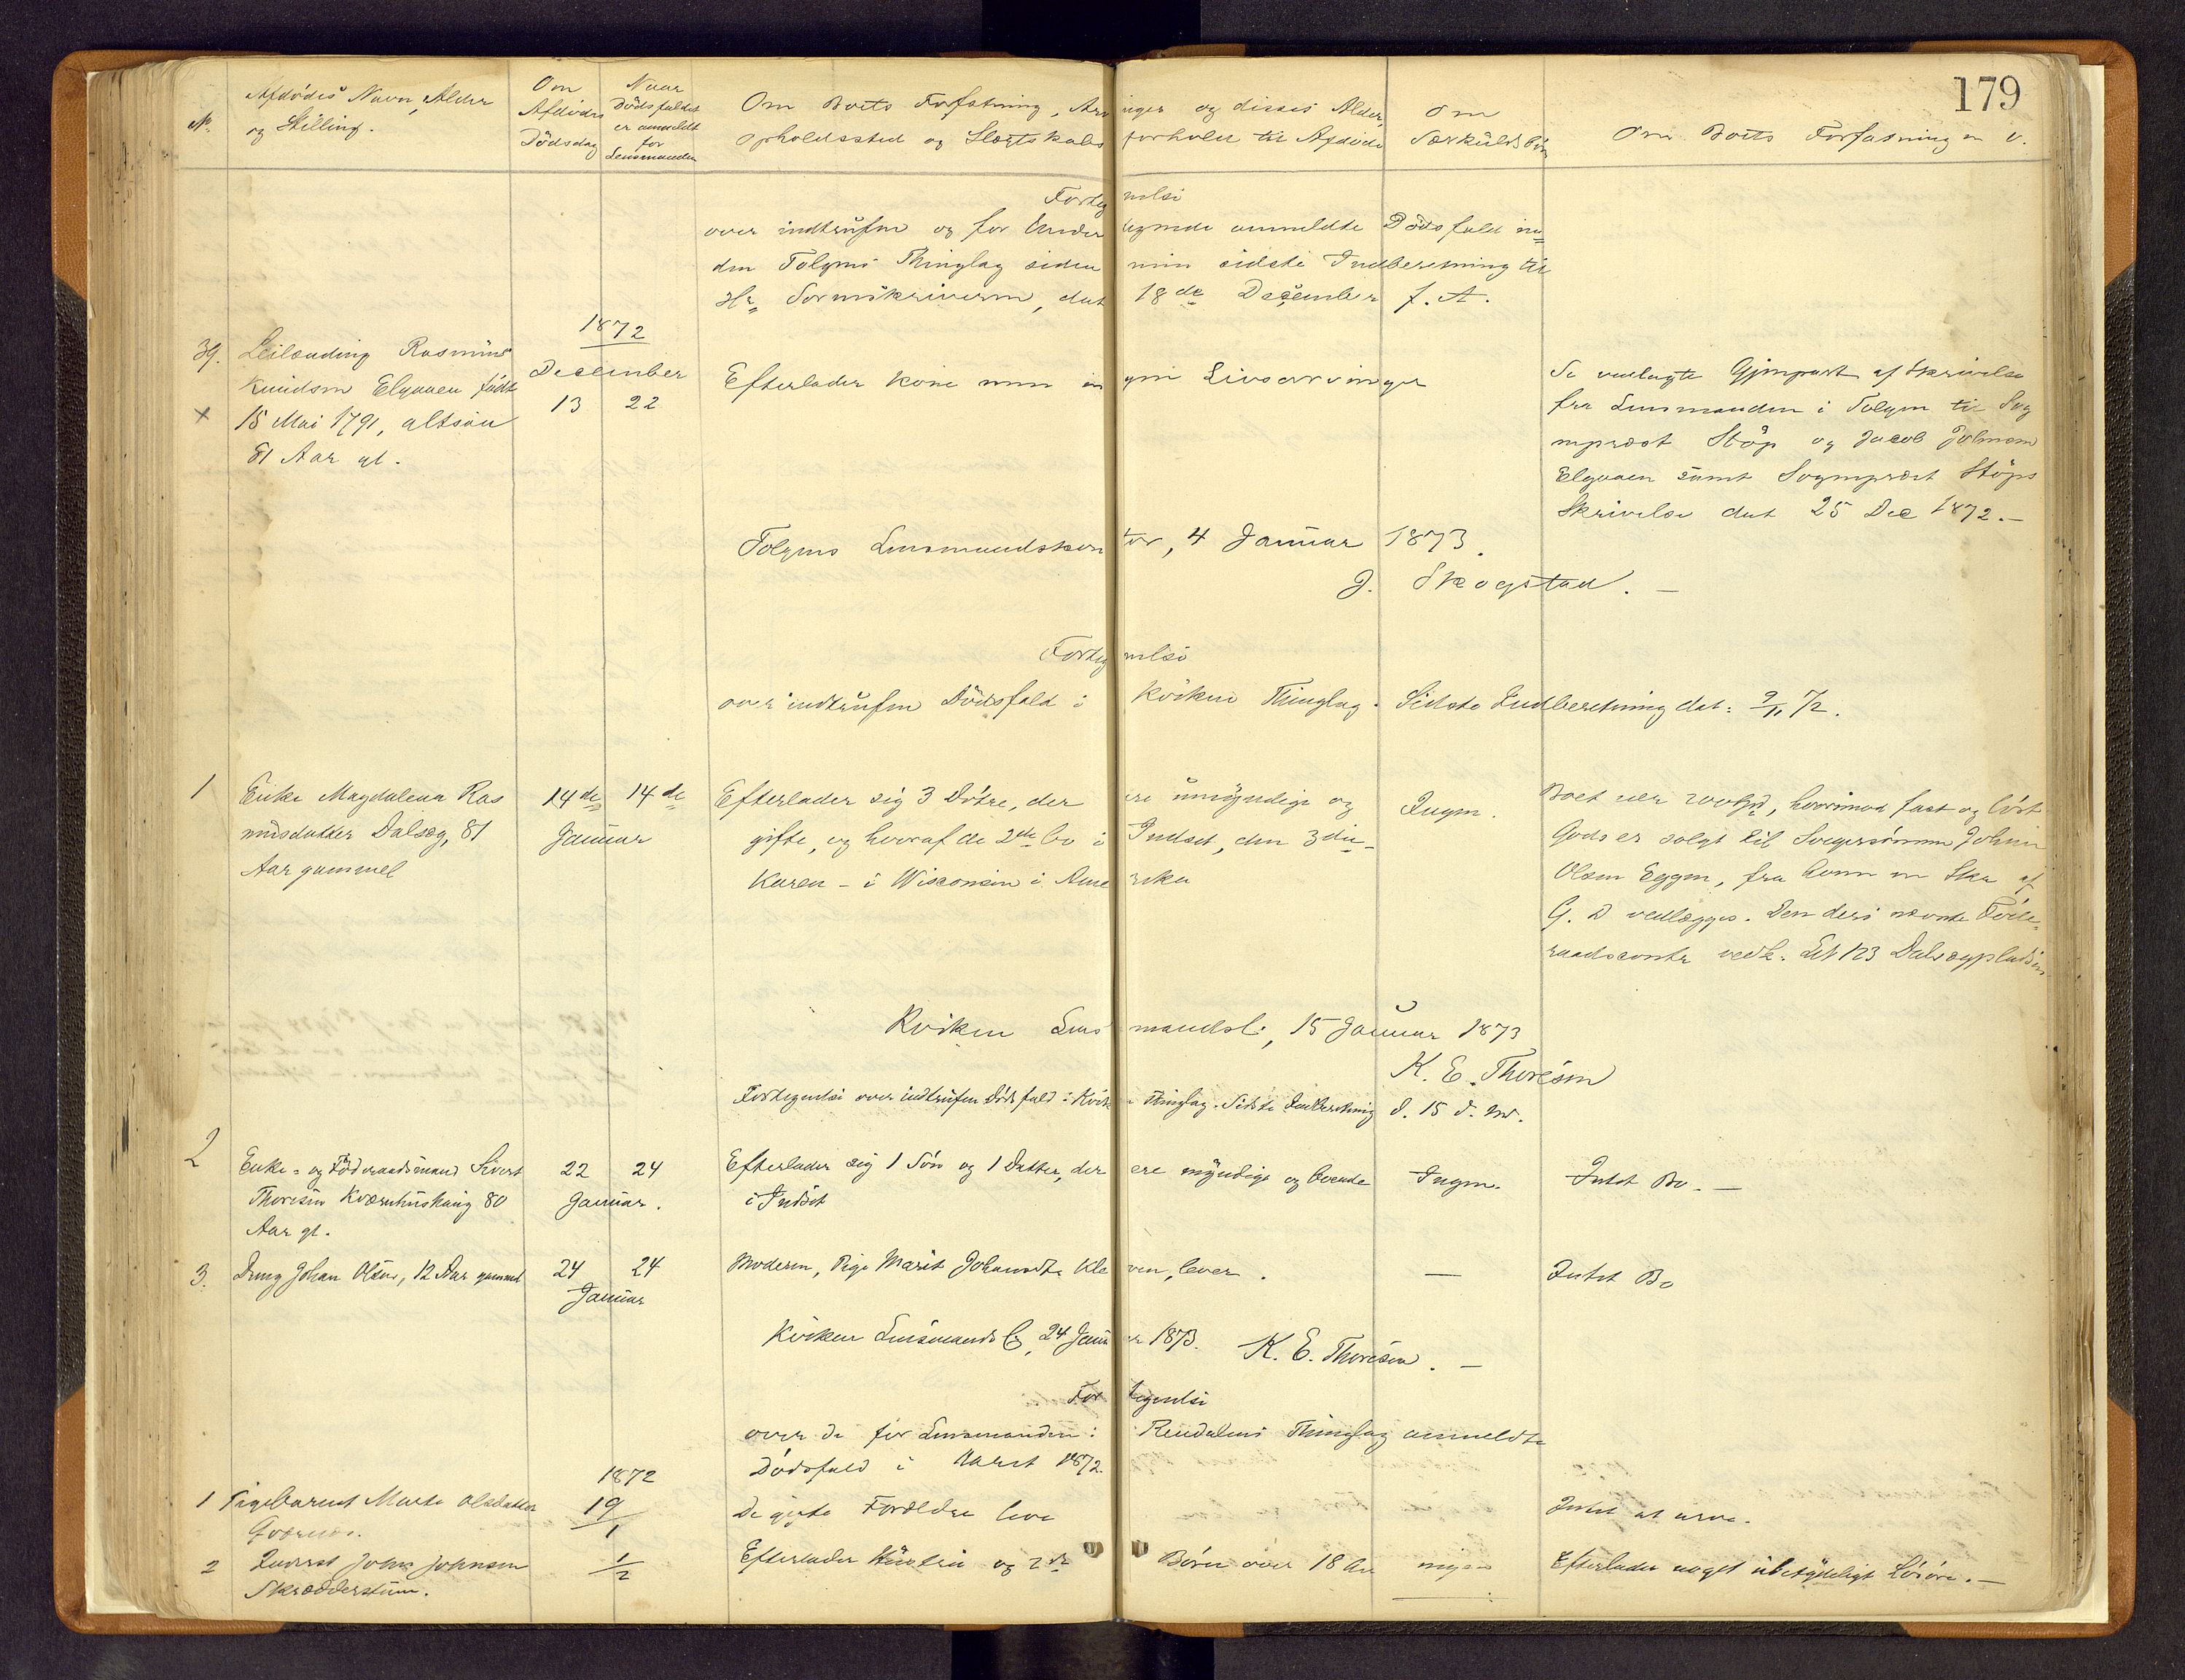 179
No. Afdødes Navn, Alder og Stilling.
Om Afdødes Dødsdag
Naar Dødsfaldet er anmeldt for Lensmanden
Om Boets Forfatning, Arvinger og disses Alder,
Opholdssted og Slægtskabsforhold til Afdøde
Om Særkuldsbörn
Om Boets Forfatning m v.
Fortegnelse
over indtrufne og for Undertegnede anmeldte Dödsfald in-
den Tolgens Thinglag siden min sidste Indberetning til
Hr. Sorenskriveren, dat 18de December f. A.
1872
39. Leilænding Rasmus
Knudsen Elgaaen födt
x 15 Mai 1791, altsaa
81 Aar gl.
December
13 22
Efterlader Kone men ingen Livsarvinger
Se vedlagte Gjenpart af Skrivelse
fra Lensmanden i Tolgen til Sog
nepræst Støp og Jacob Johnsen
Elgaaen samt Sognepræst Støps
Skrivelse dat 25 Dec 1872.-
Tolgens Lensmandskontor, 4 Januar 1873.
J. Skogstad. -
Fortegnelse
over indtrufne Dödsfald i Kvikne Thinglag. Sidste Indberetning dat: 9/11 72.
1 Enke Magdalena Ras
musdatter Dalseg, 81
Aar gammel
14de 14de
Januar
Efterlader sig 3 Døtre, der ere umyndige og
gifte, og hvoraf de 2de bo i Indset, den 3die -
Karen - i Wisconsin i Amerika
Ingen.
Boet er, hvorimod fast og løst
Gods er solgt til Svigersønnen Johan
Olsen Eggen, fra hvem en Skr af
G. D vedlægges. Den deri nævnte Föde-
raadscontr vedk. Lit 123 Dalsegpladsen
Kvikne Lensmandsb:, 15 Januar 1873
K. E. Thoresen
Fortegnelse over indtrufne Dödsfald i Kvikne Thinglag. Sidste Indberetning d. 15 d. M.
2 Enke- og Föderaadsmand Sivert
Thoresen Kværnhuskaug 80
Aar gl.
22 24
Januar.
Efterlader sig 1 Sön og 1 Datter, der ere myndige og boende
i Indset
Ingen.
Intet Bo. -
3. Dreng Johan Olsen, 12 Aar gammel
24 24
Januar
Moderen, Pige Marit Johansdtr Kleven, lever.
-
Intet Bo
Kvikne Lensmandsb, 24 Januar 1873. K. E. Thoresen. -
Fortegnelse
over de for Lensmanden i Rendalens Thinglag anmeldte
Dödsfald i Aaret 1872.
1872
1 Pigebarnet Marte Olsdatter
19/1
De gifte Forældre leve
Intet at arve.
2 Inderst John Johnsen
Skrædderstuen.
1/2
Efterlader Hustru og 2de Børn over 18 Aar
ingen
Efterlader noget ubetydeligt Løsøre. -